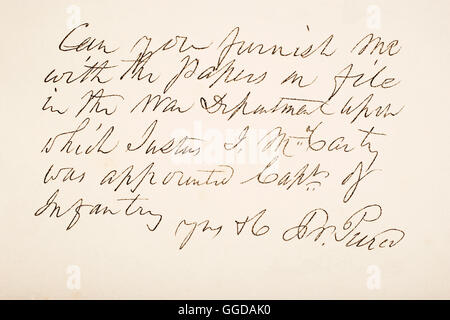 Can you furnish me
with the Papers on file
in the War Department upon
which Justus I. McCarty
was appointed Capt. of
Infantry yrs &c
alamy
www.alamy.com
GGDAK0